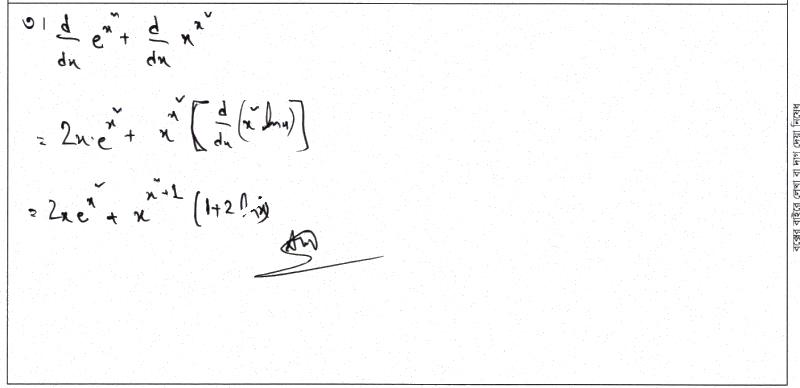 ৩। d/dx e^x² + d/dx x^x²
= 2x·e^x² + x^x² [d/dx (x² lnx)]
= 2xe^x² + x^x²+1 (1+2lnx)
Ans
বক্সের বাইরে লেখা বা দাগ দেয়া নিষেধ